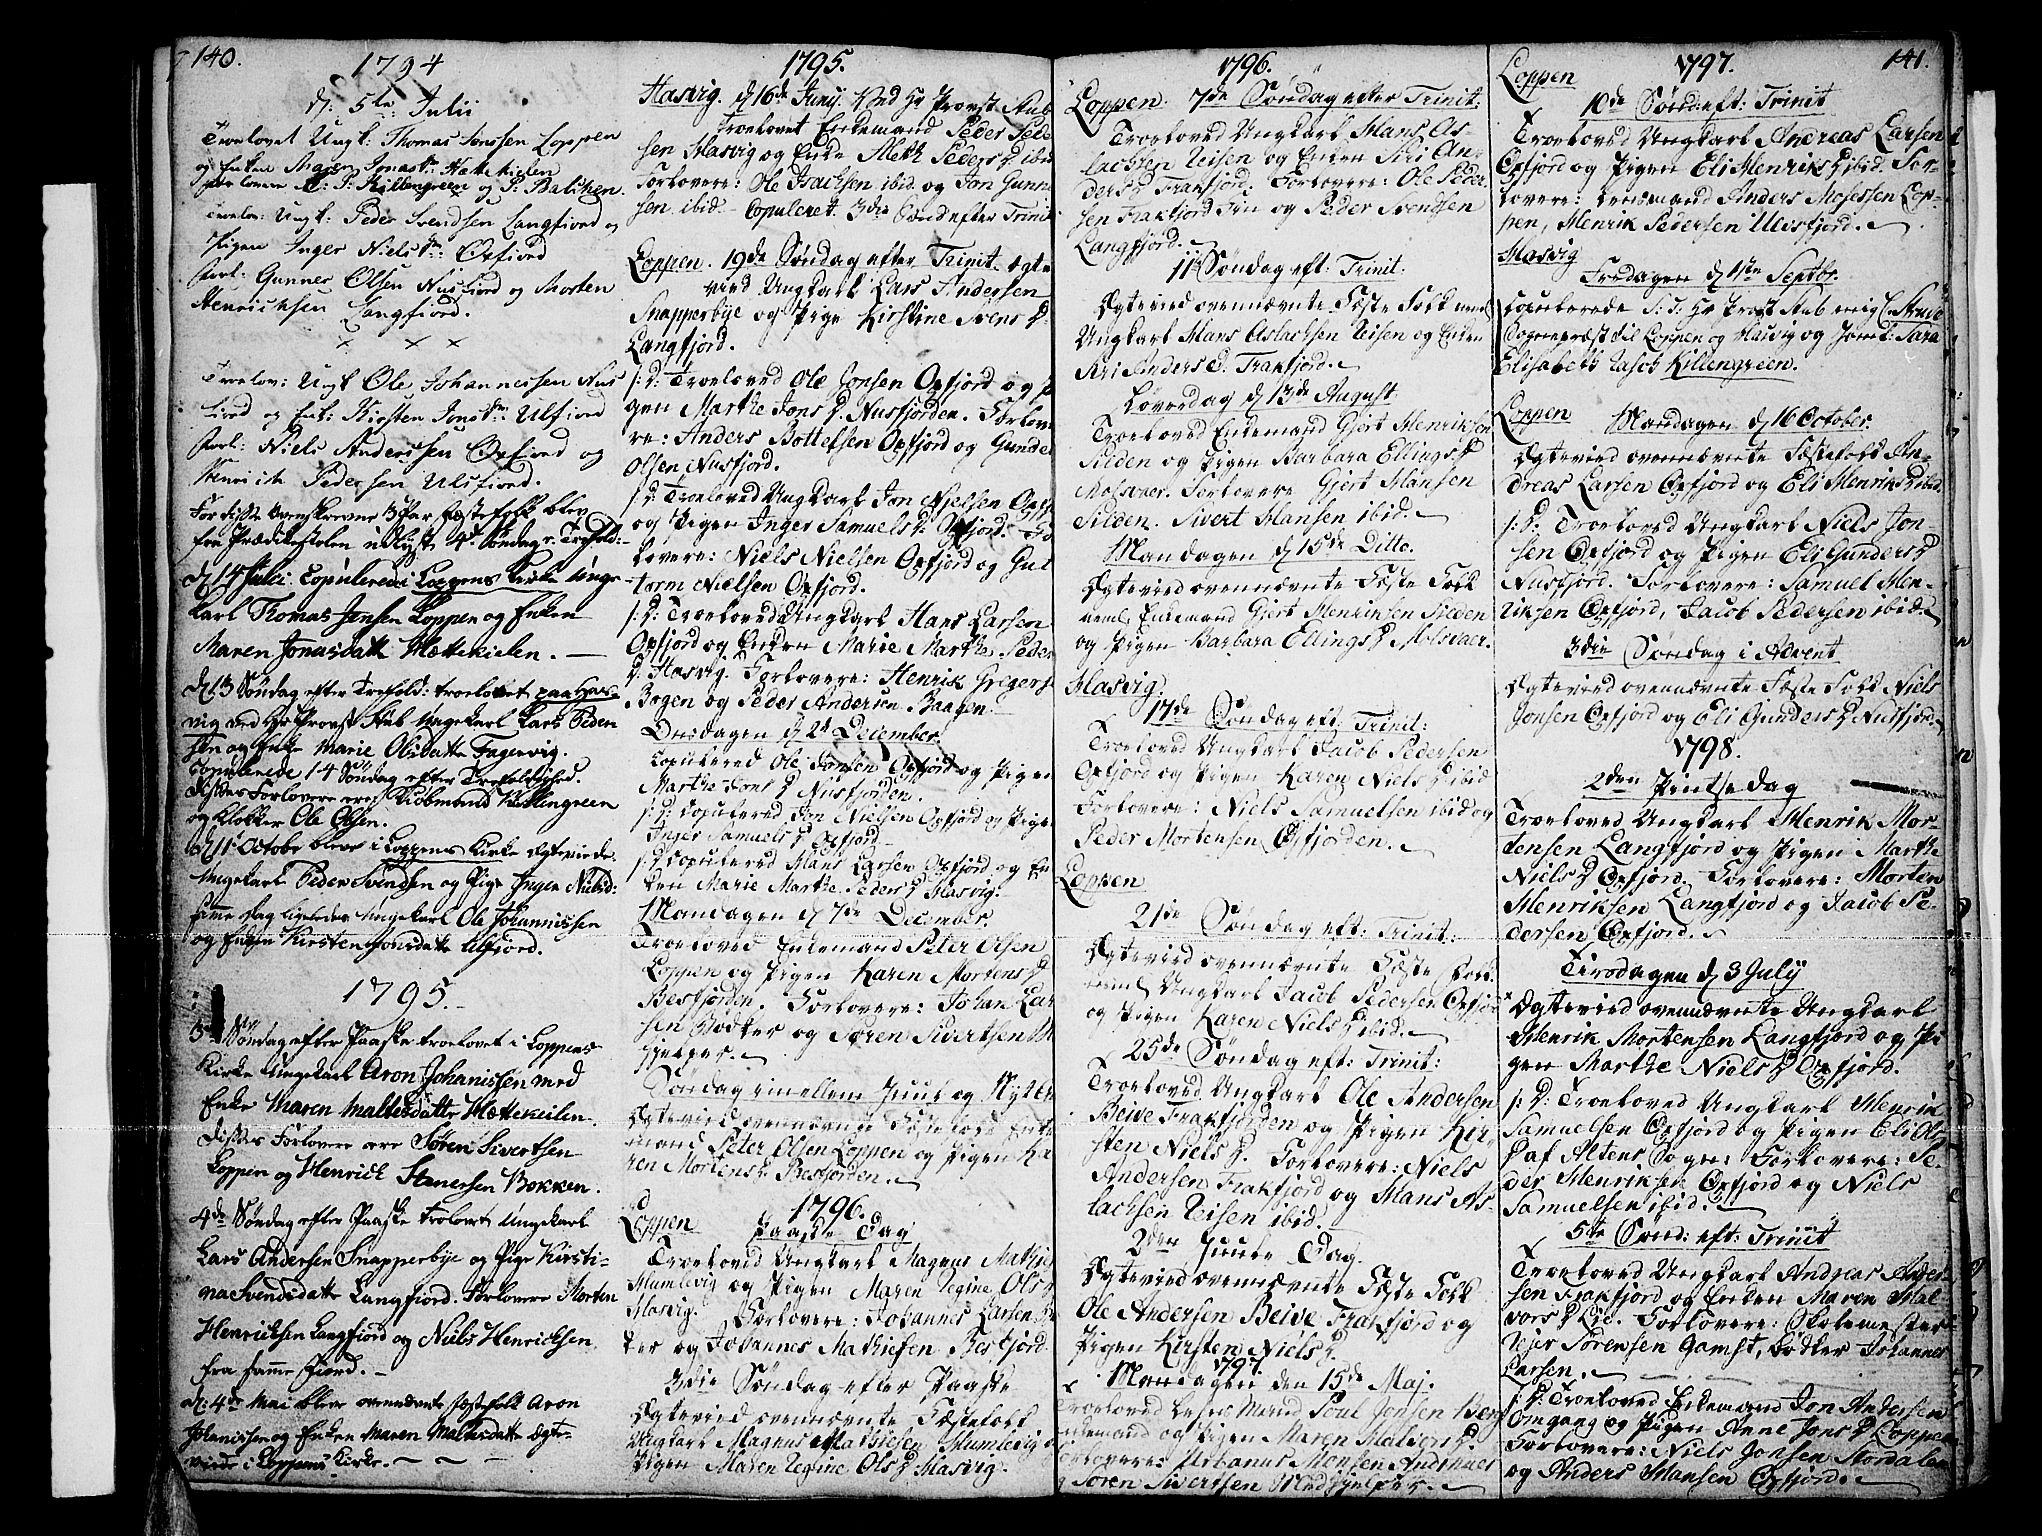 140.
1794
d: 5te Julii
Troelovet Ungk: Thomas Jenssen Loppen
og Enken Maren Jonasdr Hættekielen
forlovere Killengreen og
Troelov: Ungk: Peder Svendsen Langfiord og
Pigen Inger Nielsdr: Øxfiord
forl: Gunner Olsen Nusfiord og Morten
Henrichsen Langfiord.
Troelov: Ungk Ole Johannessen Nus
fiord og Enk: Kirsten Jonsdr Ulfiord
forl: Niels Anderssen Øxfiord og
Henrich Pedersen Ulsfiord.
For disse ovenskrevne 3 Par fæstefolk blev
fra Prædikestolen udlyst 4de Søndag e: Trefold:
d 14 Julii Copulered i Loppens Kirke Unge
Karl Thomas Jensen Loppen og Enken
Maren Jonasdatt Hættekielen. —
d 13 Søndag efter Trefold: troelovet paa Has-
vig ved Hr Provst Aub Ungekarl Lars Peder
sen og Enke Marie Olsdatte Fagervig.
Copulerede 14 Søndag efter Trefoldighed.
disses Forlovere ere Kiøbmand Killengreen
og Klokker Ole Olsen.
d 11 October bleve i Loppens Kirke Egteviede
Ungekarl Peder Svendsen og Pige Inger Nielsd:
samme dag ligeledes Ungekarl Ole Johannissen
og Enken Kirsten Jonsdatte Ulfiord.
1795.
3die Søndag efter Paaske troelovet i Loppens
Kirke Ungekarl Aron Johanissen med
Enke Maren Maltesdatte Hættekeilen.
disses Forlovere ere Søren Sivertsen
Loppen og Henrich Stenersen Bokken.
4de Søndag efter Paaske Trolovet Ungekarl
Lars Andersen Snapperbye og Pige Kirsti-
na Svendsdatte Langfiord. Forlovere Morten
Henricksen Langfiord og Niels Henricksen
fra samme Fiord. —
d: 4de Mai blev ovennævnte fæstefolk Aron
Johanissen og Enken Maren Maltesdatte Egte-
viede i Loppens Kirke. — — —
1795.
Hasvig. d 16de Junij. Ved Hr Provst Aub
Troelovet Enkemand Peder Peder
sen Hasvig og Enke Meth Peders D ibid
Forlovere: Ole Isachsen ibid. og Jon Gunne
sen ibid. — Copuleret. 3die Sønd efter Trinit
Loppen. 19de Søndag efter Trinit. Egte
vied Ungkarl Lars Andersen
Snapperbye og Pige Kirstine Svens D.
Langfjord.
s: D: Troeloved Ole Jonsen Oxfjord og Pi
gen Marthe Jons D. Nusfjorden. Forlove
re: Anders Bottelsen Oxfjord og Gunder
Olsen Nusfjord.
s: D: Troeloved Ungkarl Jon Nielsen Oxfj
og Pigen Inger Samuels D. Oxfjord. For
lovere: Niels Nielsen Oxfjord og Gut
torm Nielsen Oxfjord.
s: D: Troeloved Ungkarl Hans Larsen
Oxfjord og Enken Marie Marthe Peder
D. Hasvig. Forlovere: Henrik Gregers
Bogen og Peder Andersen Baagen.
Onsdagen d 2d December.
Copulered Ole Jonsen Oxfjord og Pigen
Marthe Jons D Nusfjorden.
s: D: Copulered Jon Nielsen Oxfjord og Pigen
Inger Samuels D Oxfjord —
s: D Copulered Hans Larsen Oxfjord og En
ken Marie Marthe Peders D Hasvig.
Mandagen d 7de December.
Troeloved Enkemand Peter Olsen
Loppen og Pigen Karen Mortens D
Besfjorden. Forlovere: Johan Lar
sen Bødker og Søren Sivertsen M
hjelper.
Søndag imellem Juul og Nytaar
Egtevied ovennævnte Fæstefolk Enke
mand Peter Olsen Loppen og Pigen Ka
ren Mortens D Besfjorden.
1796.
Loppen Paaske Dag
Troeloved Ungkarl Magnus Mathie
Humlevig og Pigen Maren Regine Ols D
Hasvig. Forlovere: Johannes Larsen Bø
ker og Johannes Mathiesen Besfjord
3die Søndag efter Paaske
Egtevied ovennævnte Fæstefolk
Ungkarl Magnus Mathiesen Humlevig og
Pigen Maren Regine Ols D Hasvig.
1796.
Loppen. 7de Søndag efter Trinit:
Troeloved Ungkarl Hans As-
lachsen Reisen og Enken Siri An-
ders D. Frakfjord. Forlovere: Ole Peder
sen Frakfjord Fin og Peder Svendsen
Langfjord.
11te Søndag eft: Trinit:
Egtevied ovennævnte Fæste Folk neml
Ungkarl Hans Aslachsen Reisen og Enken
Siri Anders D. Frakfjord.
Løverdag d 13de August.
Troeloved Enkemand Gjert Henriksen
Silden og Pigen Barbara Ellings D
Molsvaer. Forlovere Gjert Hansen
Silden. Sivert Hansen ibid.
Mandagen d 15de Ditto.
Egtevied ovennævnte Fæste Folk
neml Enkemand Gjert Henriksen Silden
og Pigen Barbara Ellings D Molsvaer.
Hasvig.
17de Søndag eft: Trinit:
Troeloved Ungkarl Jacob Pedersen
Oxfjord og Pigen Karen Niels D ibid
Forlovere: Niels Samuelsen ibid og
Peder Mortensen Oxfjorden.
Loppen
21de Søndag eft: Trinit:
Egtevied ovennævnte Fæste Folk
neml Ungkarl Jacob Pedersen Oxfjord
og Pigen Karen Niels D ibid.
25de Søndag eft: Trinit:
Troeloved Ungkarl Ole Andersen
Beive Frakfjorden og Pigen Kir-
sten Niels D. Forlovere: Niels
Andersen Frakfjord og Hans As-
lachsen Reisen ibid.
2den Juule Dag.
Egtevied ovennævnte Fæste Folk
Ole Andersen Beive Frakfjord og
Pigen Kirsten Niels D.
1797
Mandagen den 15de Maj.
Troeloved Poul Jonsen
Enkemand og Pigen Maren Halvors D.
Forlovere: Urbanus Monsen
og Søren Sivertsen Medhjelper.
1797. 141.
Loppen
10de Sønd: eft: Trinit
Troeloved Ungkarl Andreas Larsen
Oxfjord og Pigen Eli Henriks D ibid. For-
lovere: Lensmand Anders Mosessen Lop-
pen, Henrik Pedersen Ulvsfjord.
Hasvig
Fredagen d 1ste Septbr.
Copulerede S: T: Hr Provst Aub mig C. Arndt
Sognepræst til Loppen og Hasvig og Jomf: Sara
Elisabeth Lasch Killengreen.
Loppen Mandagen d 16 October.
Egtevied ovennævnte Fæstefolk An-
dreas Larsen Oxfjord og Eli Henriks D ibid.
s: D: Troeloved Ungkarl Niels Jon-
sen Oxfjord og Pigen Eli Gunders D
Nusfjord. Forlovere: Samuel Hen-
riksen Oxfjord, Jacob Pedersen ibid.
3die Søndag i Advent
Egtevied ovennævnte Fæste Folk Niels
Jonsen Oxfjord og Eli Gunders D Nusfjord.
1798.
2den Pintse dag
Troeloved Ungkarl Henrik Mor-
tensen Langfjord og Pigen Marthe
Niels D Oxfjord. Forlovere: Morten
Henriksen Langfjord og Jacob Pe-
dersen Oxfjord.
Tirsdagen d 3 July
Egtevied ovennævnte Ungkarl
Henrik Mortensen Langfjord og Pi
gen Marthe Niels D Oxfjord.
s: D: Troeloved Ungkarl Henrik
Samuelsen Oxfjord og Pigen Eli Ols
D af Altens Sogn: Forlovere: Pe-
der Henriksen Oxfjord og Niels
Samuelsen ibid.
5te Sønd: eft: Trinit
Troeloved Ungkarl Andreas Ander-
sen Frakfjord og Enken Maren Hal-
vors D Lid. Forlovere: Skolemester
Sørensen Gamst, Bødker Johannes
Larsen.
s: D: Troeloved Enkemand Jon Andersen
Omgang og Pigen Anne Jons D Loppen
Forlovere: Niels Jonsen Stordalen
og Anders Hansen Oxfjord.